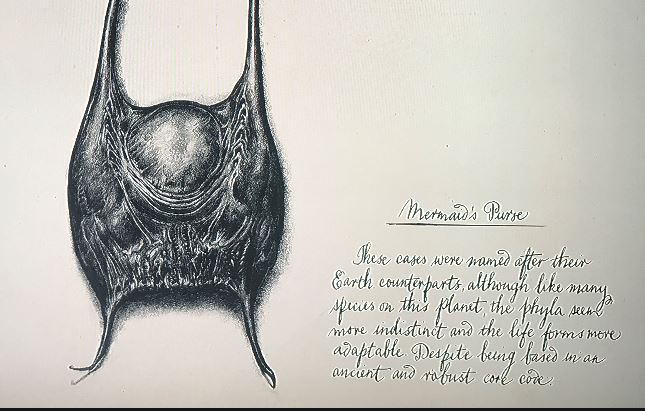 Mermaid's Purse
These cases were named after their
Earth counterparts, although like many
species on this planet, the phyla seems
more indistinct and the life forms more
adaptable. Despite being based in an
ancient and robust core code.